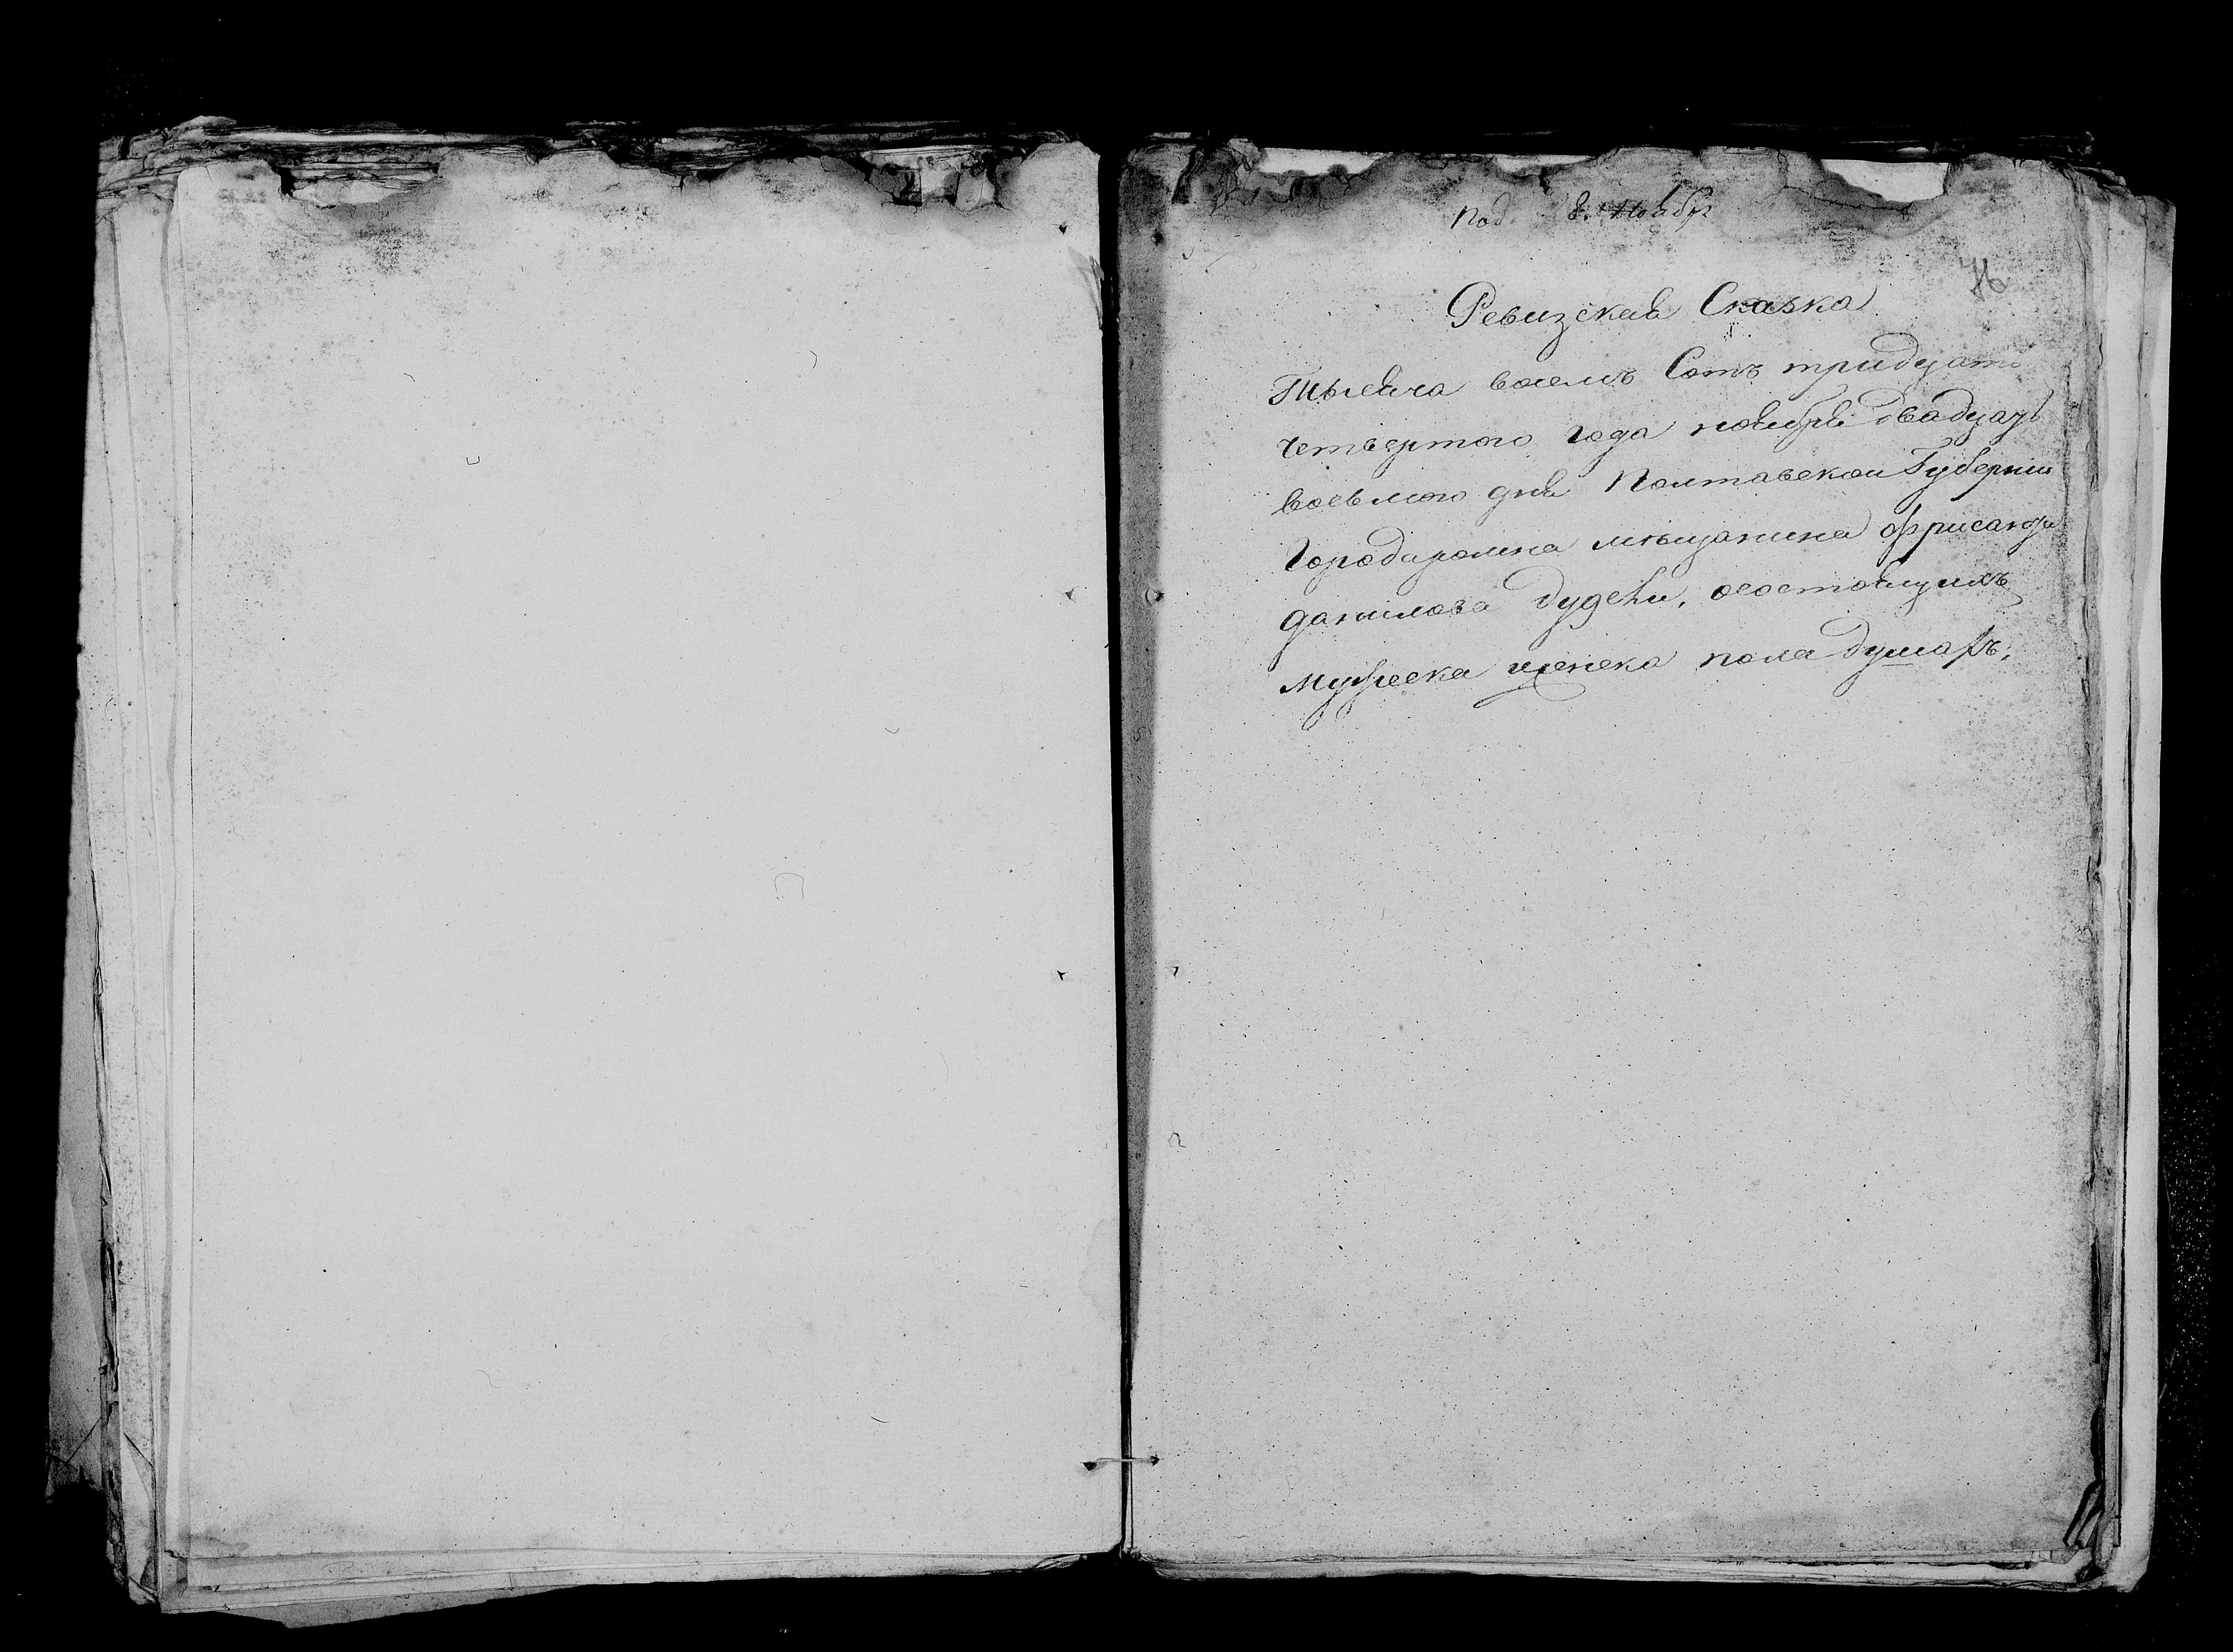 Под. 8. Ноябр
76
Ревизская Сказка
Тысяча восемъ Сотъ тридцать
четвертого года ноября двадцать
восьмого дня Полтавской Губернии
Города ромна мѣщанина
данилова дудки, осостоящихъ
мужеска иженска пола душахъ.